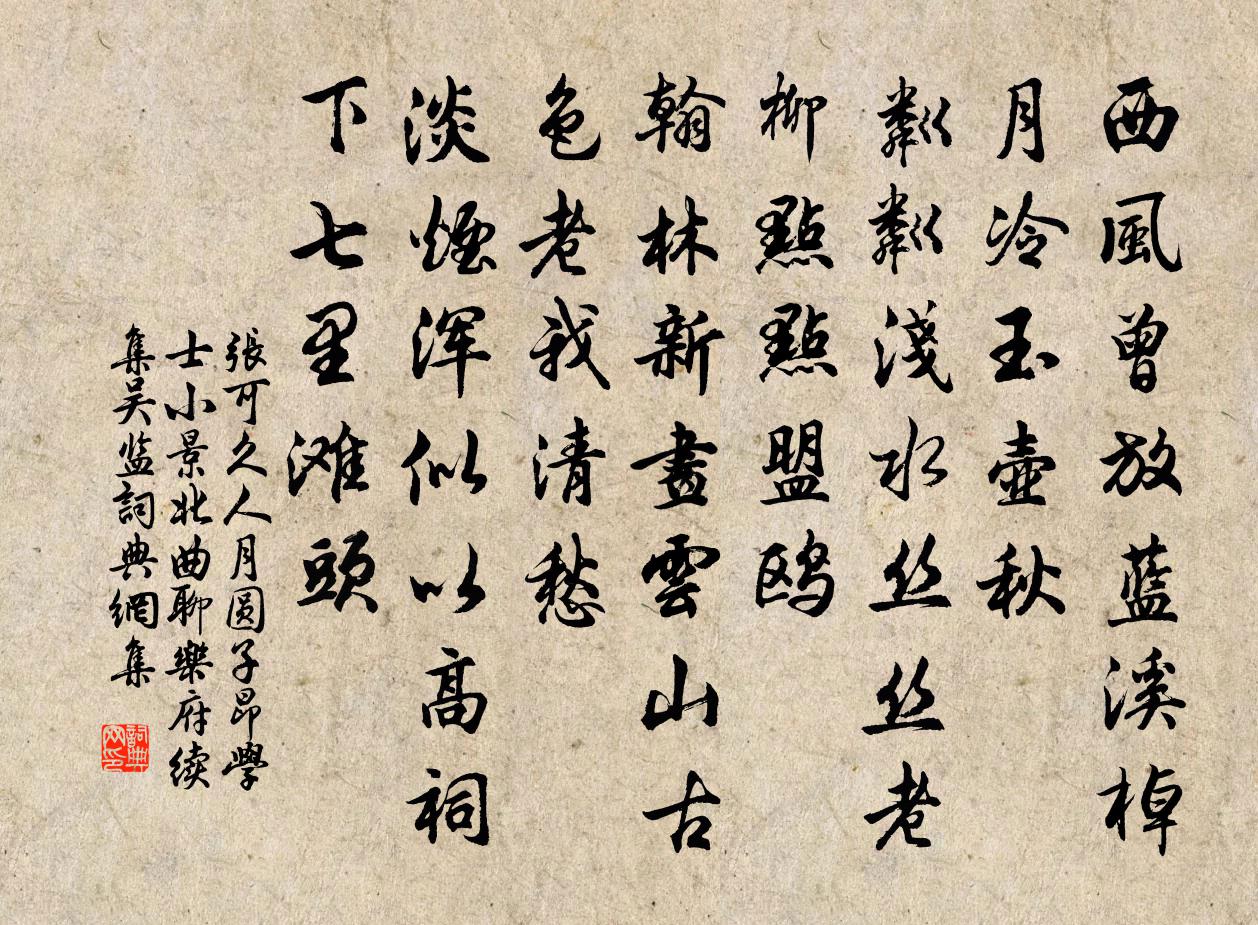 西風曾放藍溪棹
月冷玉壺秋
粼粼淺水丝丝老
柳點點盟鸥
翰林新畫雲山古
色老我清愁
淡煙浑似以高祠
下七里滩頭
張可久人月圆子昂學
士小景北曲聊樂府续
集吴监詞典網集
詞典
网印